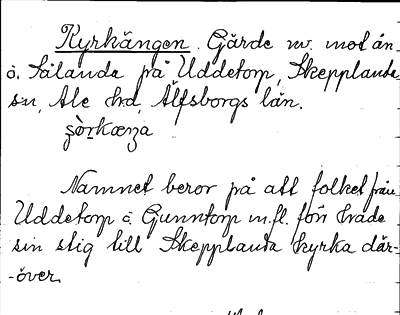 Kyrkängen. Gärde nv. mot ån
ö. Sålanda på Uddetorp, Skepplanda
sn, Ale hd, Älfsborgs län.
Namnet beror på att folket från
Uddetorp o. Gunntorp m.fl. förr hade
sin stig till Skepplanda kyrka där-
-över.